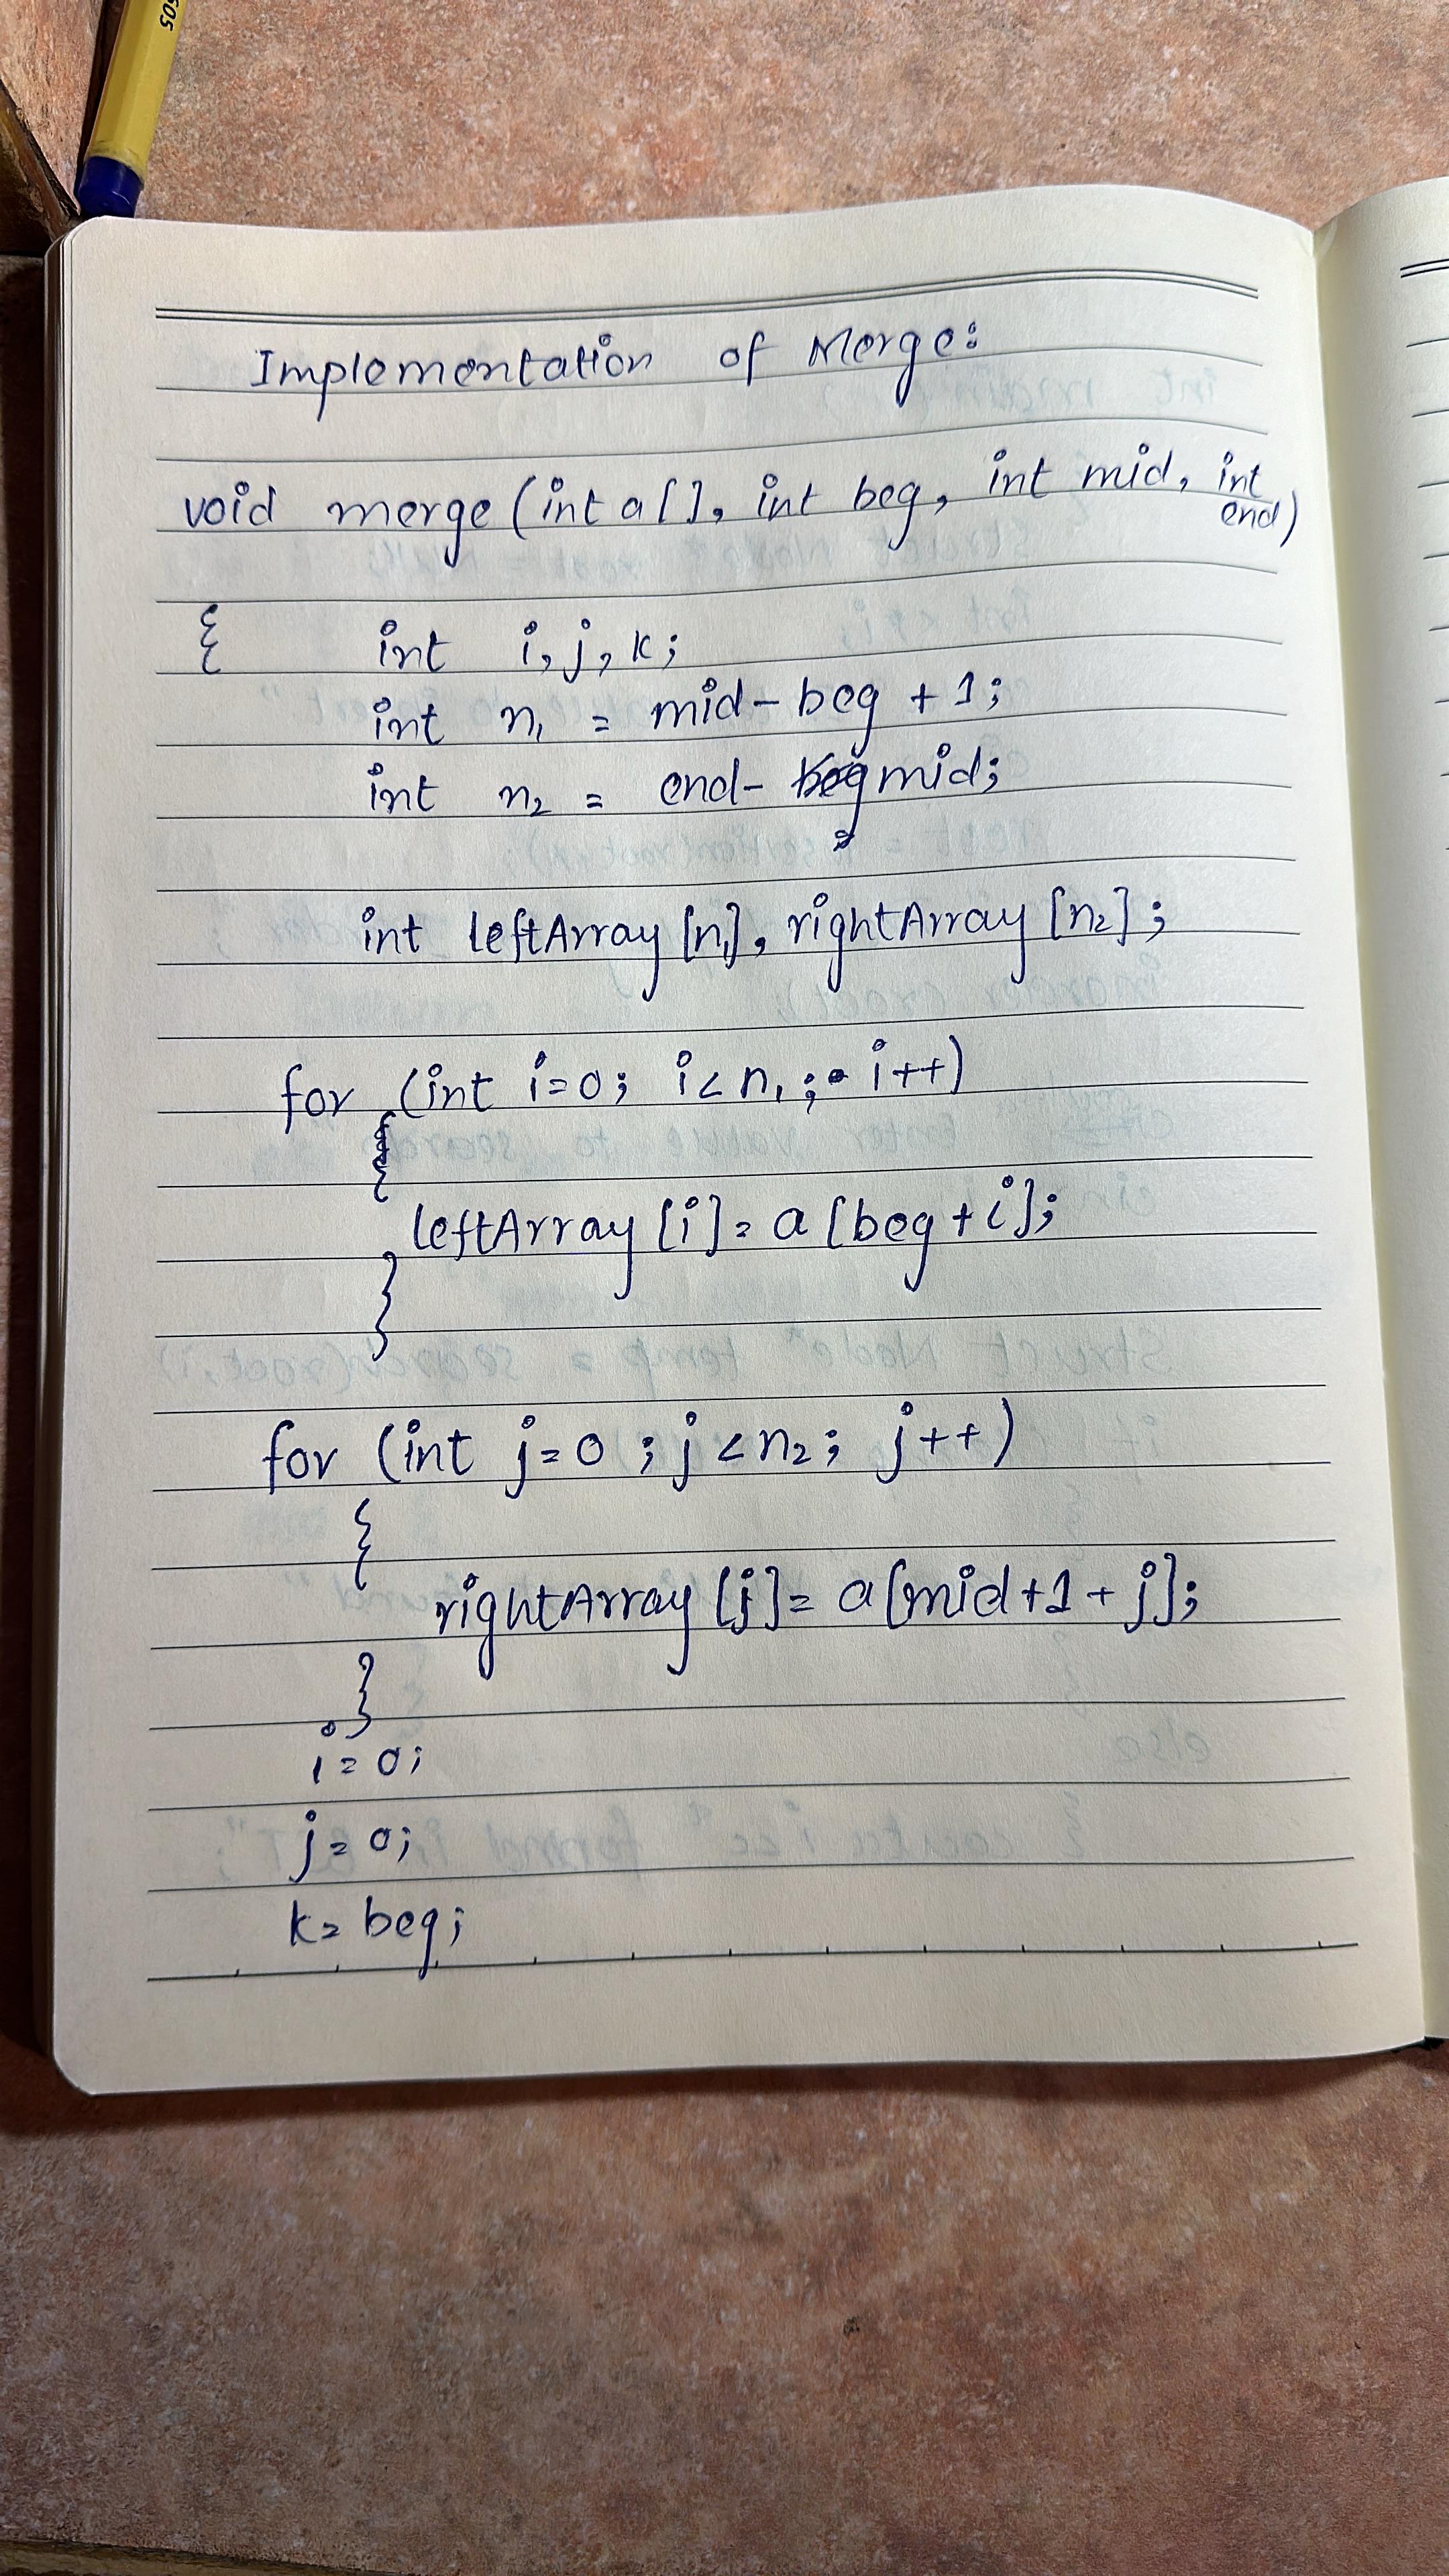 505
Implementation of Merge:
void merge (int a[], int beg, int mid, int
end)
{ int i, j, k;
int n1 = mid - beg + 1;
int n2 = end - beg mid;
int leftArray [n1], rightArray [n2];
for (int i=0; i<n1; i++)
{
leftArray [i] = a [beg + i];
}
for (int j=0 ; j<n2; j++)
{
rightArray [j] = a[mid+1+j];
}
i=0;
j=0;
k= beg;